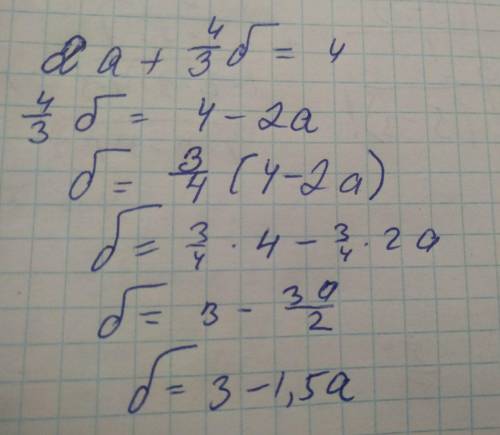 2a + 4/3 б = 4
4/3 б = 4 - 2a
б = 3/4 (4 - 2a)
б = 3/4 · 4 - 3/4 · 2a
б = 3 - 3a/2
б = 3 - 1,5a